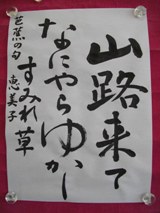 山路来て
なにやらゆかし
すみれ草
芭蕉の句
恵美子